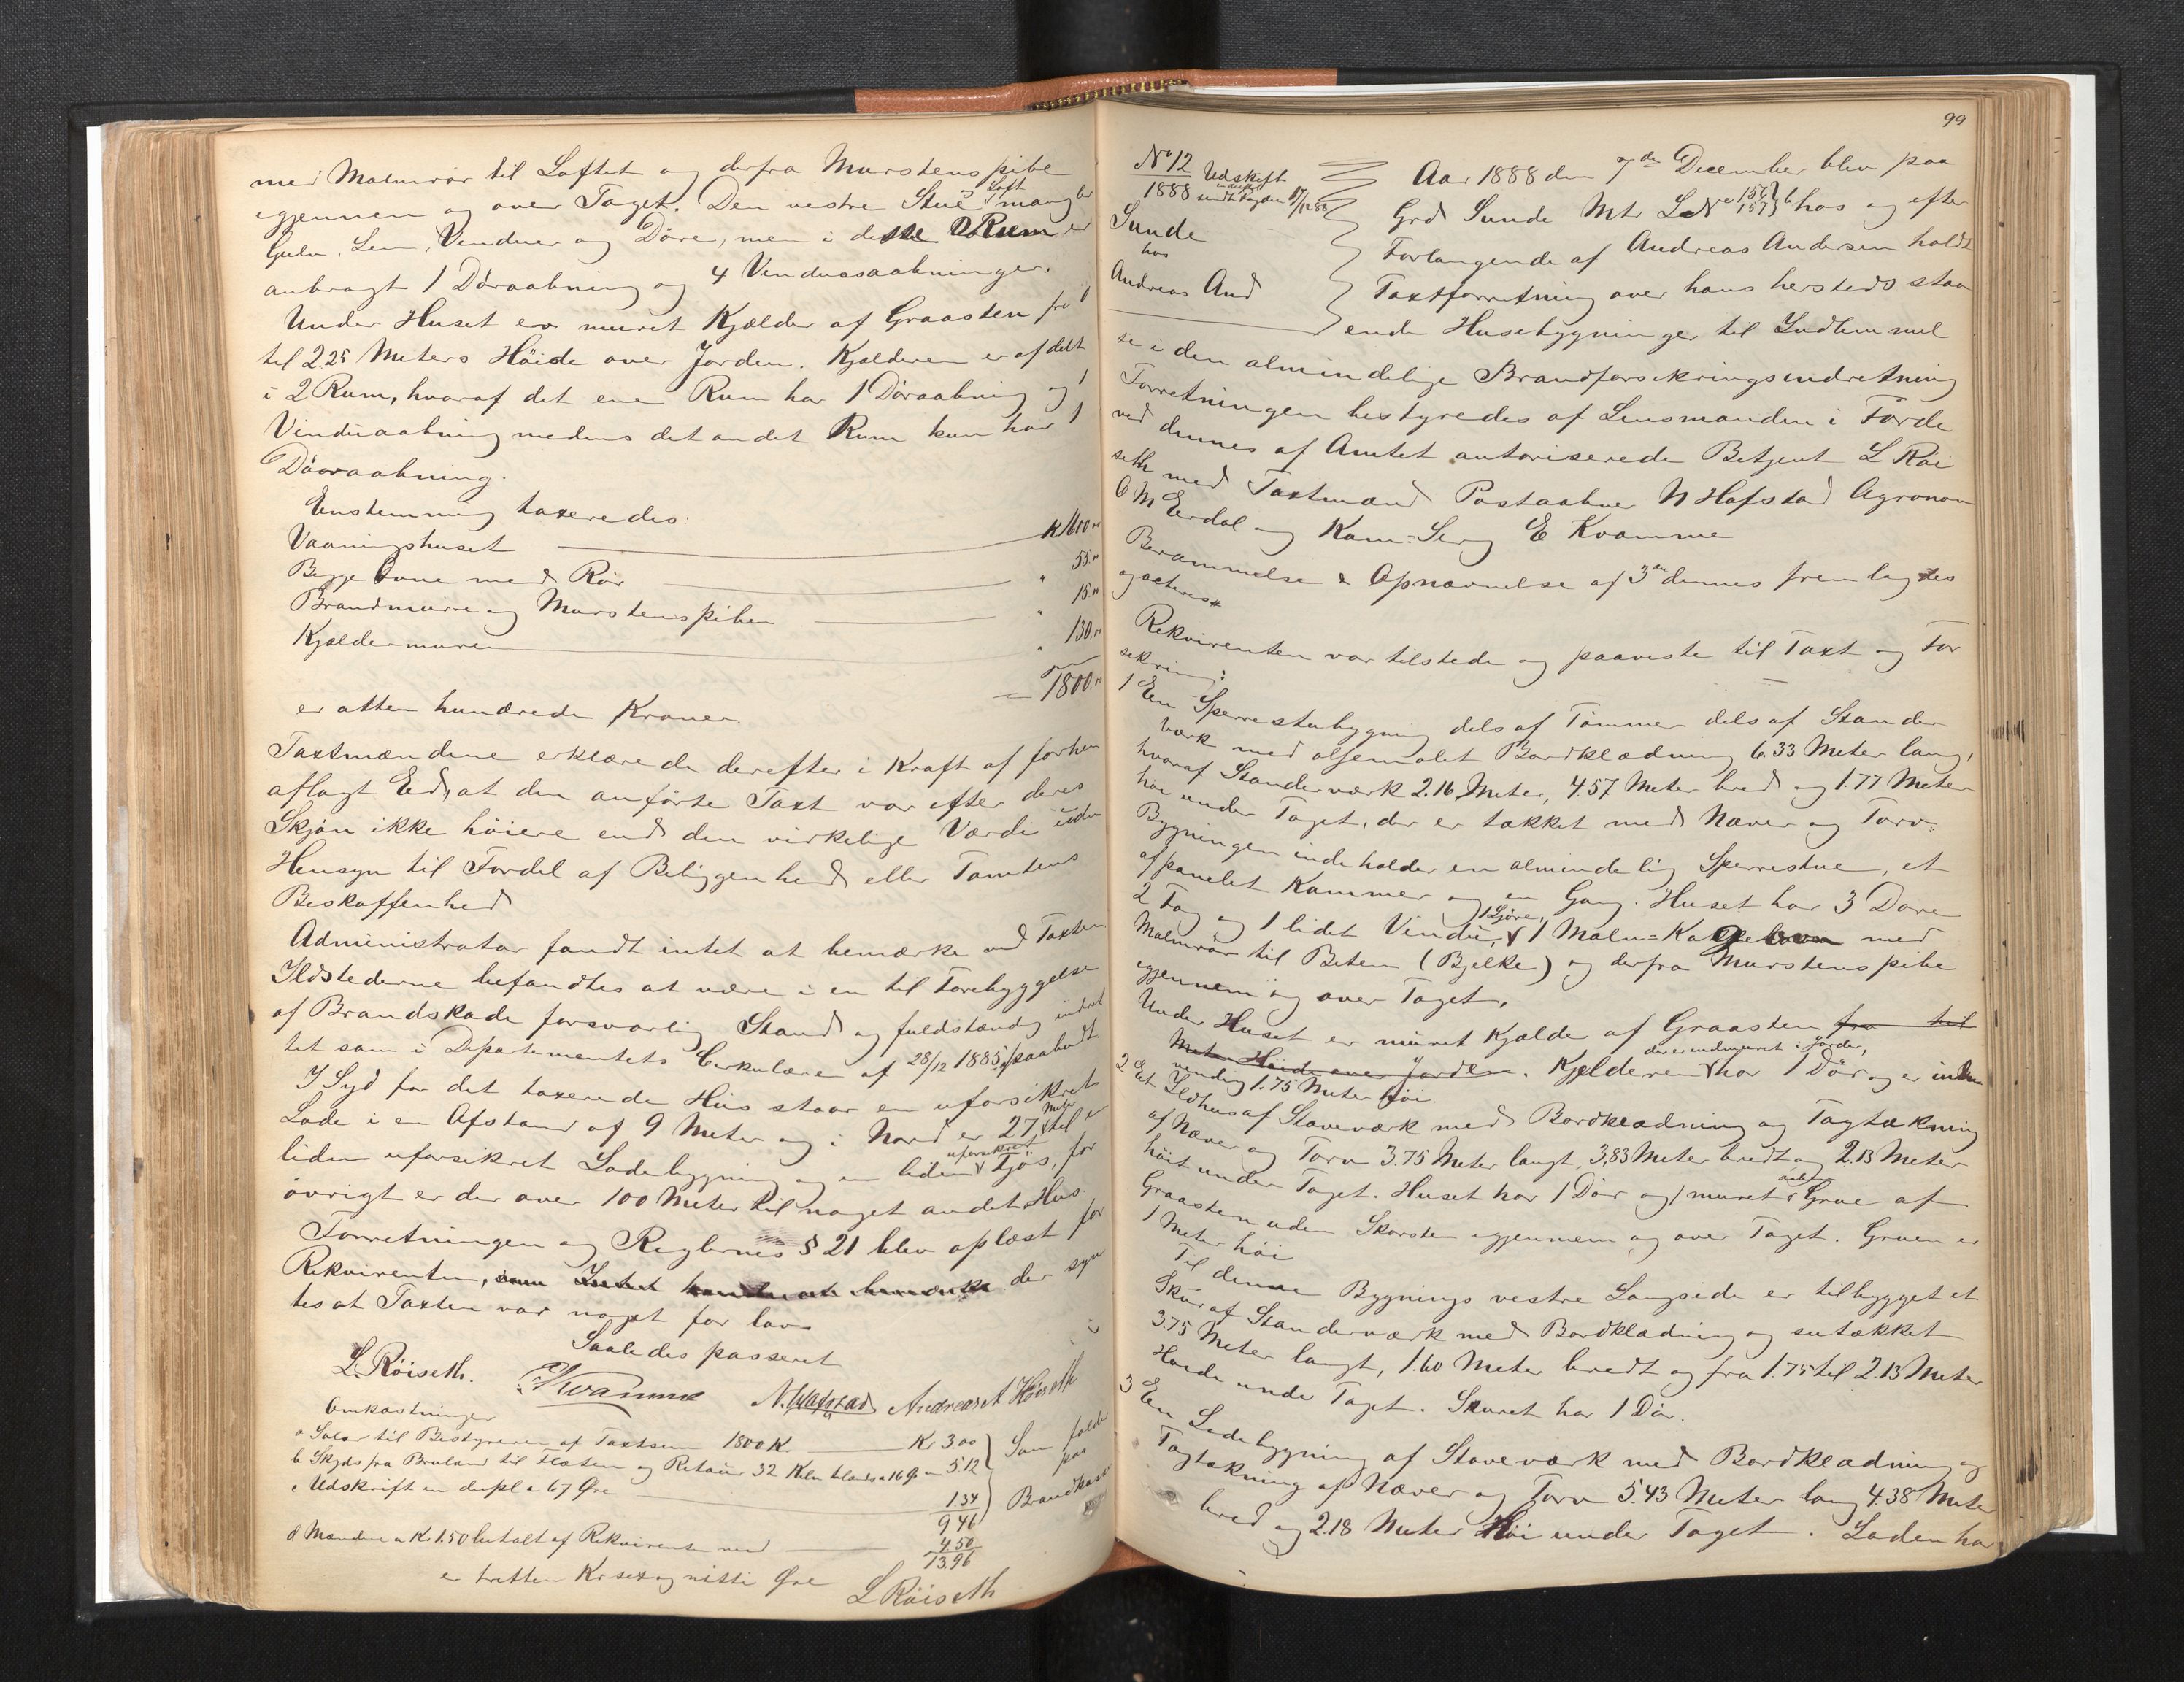 med Malmrör til Loftet og derfra Murstenspibe
igjennem og over Taget. Den vestre Stue Loft mangler
Gulv, Lem, Vinduer og Döre, men i dette Rum er
anbragt 1 Döraabning og 4 Vinduesaabninger.
Under Huset er muret Kjælder af Graasten fra 1
til 2.25 Meters Höide over Jorden. Kjælderen er afdelt
i 2 Rum, hvoraf det ene Rum har 1 Döraabning og 1
Vinduaabning medens det andet Rum kun har 1
Döraabning.
Enstemmig taxeredes:
Vaaningshuset K 1600.„
Begge Ovne med Rör „ 55.„
Brandmure og Murstenspiben „ 15.„
Kjældermuren „ 130.„
1800.„
er atten hundrede Kroner.
Taxtmændene erklærede derefter i Kraft af forhen
aflagt Ed, at den anförte Taxt var efter deres
Skjön ikke höiere end den virkelige Værdi uden
Hensyn til Fordel af Beliggenhed eller Tomtens
Beskaffenhed
Administrator fandt intet at bemærke ved Taxten
Ildstederne befandtes at være i en til Forebyggelse
af Brandskade forsvarlig Stand og fuldstændig indret
tet som i Departementets Cirkulære af 28/12 1885 paabudt
I Syd for det taxerede Hus staar en uforsikret
Lade i en Afstand af 9 Meter og i Nord er 27 Meter til en
liden uforsikret Ladebygning og en liden uforsikret Fjös, for
övrigt er der over 100 Meter til noget andet Hus.
Forretningen og Reglernes § 21 blev oplæst for
Rekvirenten, der syn
tes at Taxten var noget for lav.
Saaledes passeret
L. Röiseth. E Kvamme N. Hafstad Andreas A Höiseth
Omkostninger
a Salær til Bestyreren af Taxtsum 1800 K. Kr 3.00
b Skyds fra Bruland til Flaten og Retour 32 Klm à 16 Ø „ 5.12
c Udskrift en dupl a 67 Øre 1.34
Som falder paa Brandkassen
9.46
d Mændene a Kr 1.50 betalt af Rekvirenten med 4.50
13.96
er tretten Kr sex og nitti Øre
L Röiseth
99
No 12
1888
Udskift indført sendt Fogden 17/12 88
Sunde
hos
Andreas And
Aar 1888 den 7de December blev paa
Grd Sunde Mtr L No 156 157 b hos og efter
Forlangende af Andreas Andersen holdt
Taxtforretning over hans hersteds staa
ende Husebygninger til Indlemmel
se i den almindelige Brandforsikringsindretning
Forretningen bestyredes af Lensmanden i Förde
ved dennes af Amtet autoriserede Betjent L Röi
seth med Taxtmænd Postaabner N Hafstad Agronom
O M Erdal og Kom=Serg E Kvamme
Berammelse & Opnævnelse af 3die dennes fremlagdes
og acteres
Rekvirenten var tilstede og paaviste til Taxt og For
sikring:
1 En Sperrestubygning dels af Tömmer dels af Stander
værk med oljemalet Bordklædning 6.33 Meter lang,
hvoraf Standerværk 2.16 Meter, 4.57 Meter bred og 1.77 Meter
höi under Taget, der er tækket med Næver og Torv.
Bygningen indeholder en almindelig Sperrestue, et
afpanelet Kammer og en Gang. Huset har 3 Döre
2 Fag og 1 lidet Vindu, 1 Ljöre, 1 Malm=Kakkelovn med
Malmrör til Beten (Bjelke) og derfra Murstenspibe
igjennem og over Taget.
Under Huset er muret Kjælder af Graasten fra til
Meter Höide over Jorden. Kjælderen der er indmuret i Jorden, har 1 Dör og er inden
vendig 1.75 Meter höi
2 Et Ildhus af Staveværk med Bordklædning og Tagtækning
af Næver og Torv 3.75 Meter langt, 3.83 Meter bredt og 2.13 Meter
höit under Taget. Huset har 1 Dör og 1 muret Grue af
Graasten uden Skorsten igjennem og over Taget. Gruen er
1 Meter höi
Til denne Bygnings vestre Langside er tilbygget et
Skur af Standerværk med Bordklædning og sutækket
3.75 Meter langt, 1.60 Meter bredt og fra 1.75 til 2.13 Meter
Höide under Taget. Skuret har 1 Dör.
3 En Ladebygning af Staveværk med Bordklædning og
Tagtækning af Næver og Torv 5.43 Meter lang 4.38 Meter
bred og 2.18 Meter Höi under Taget. Laden har